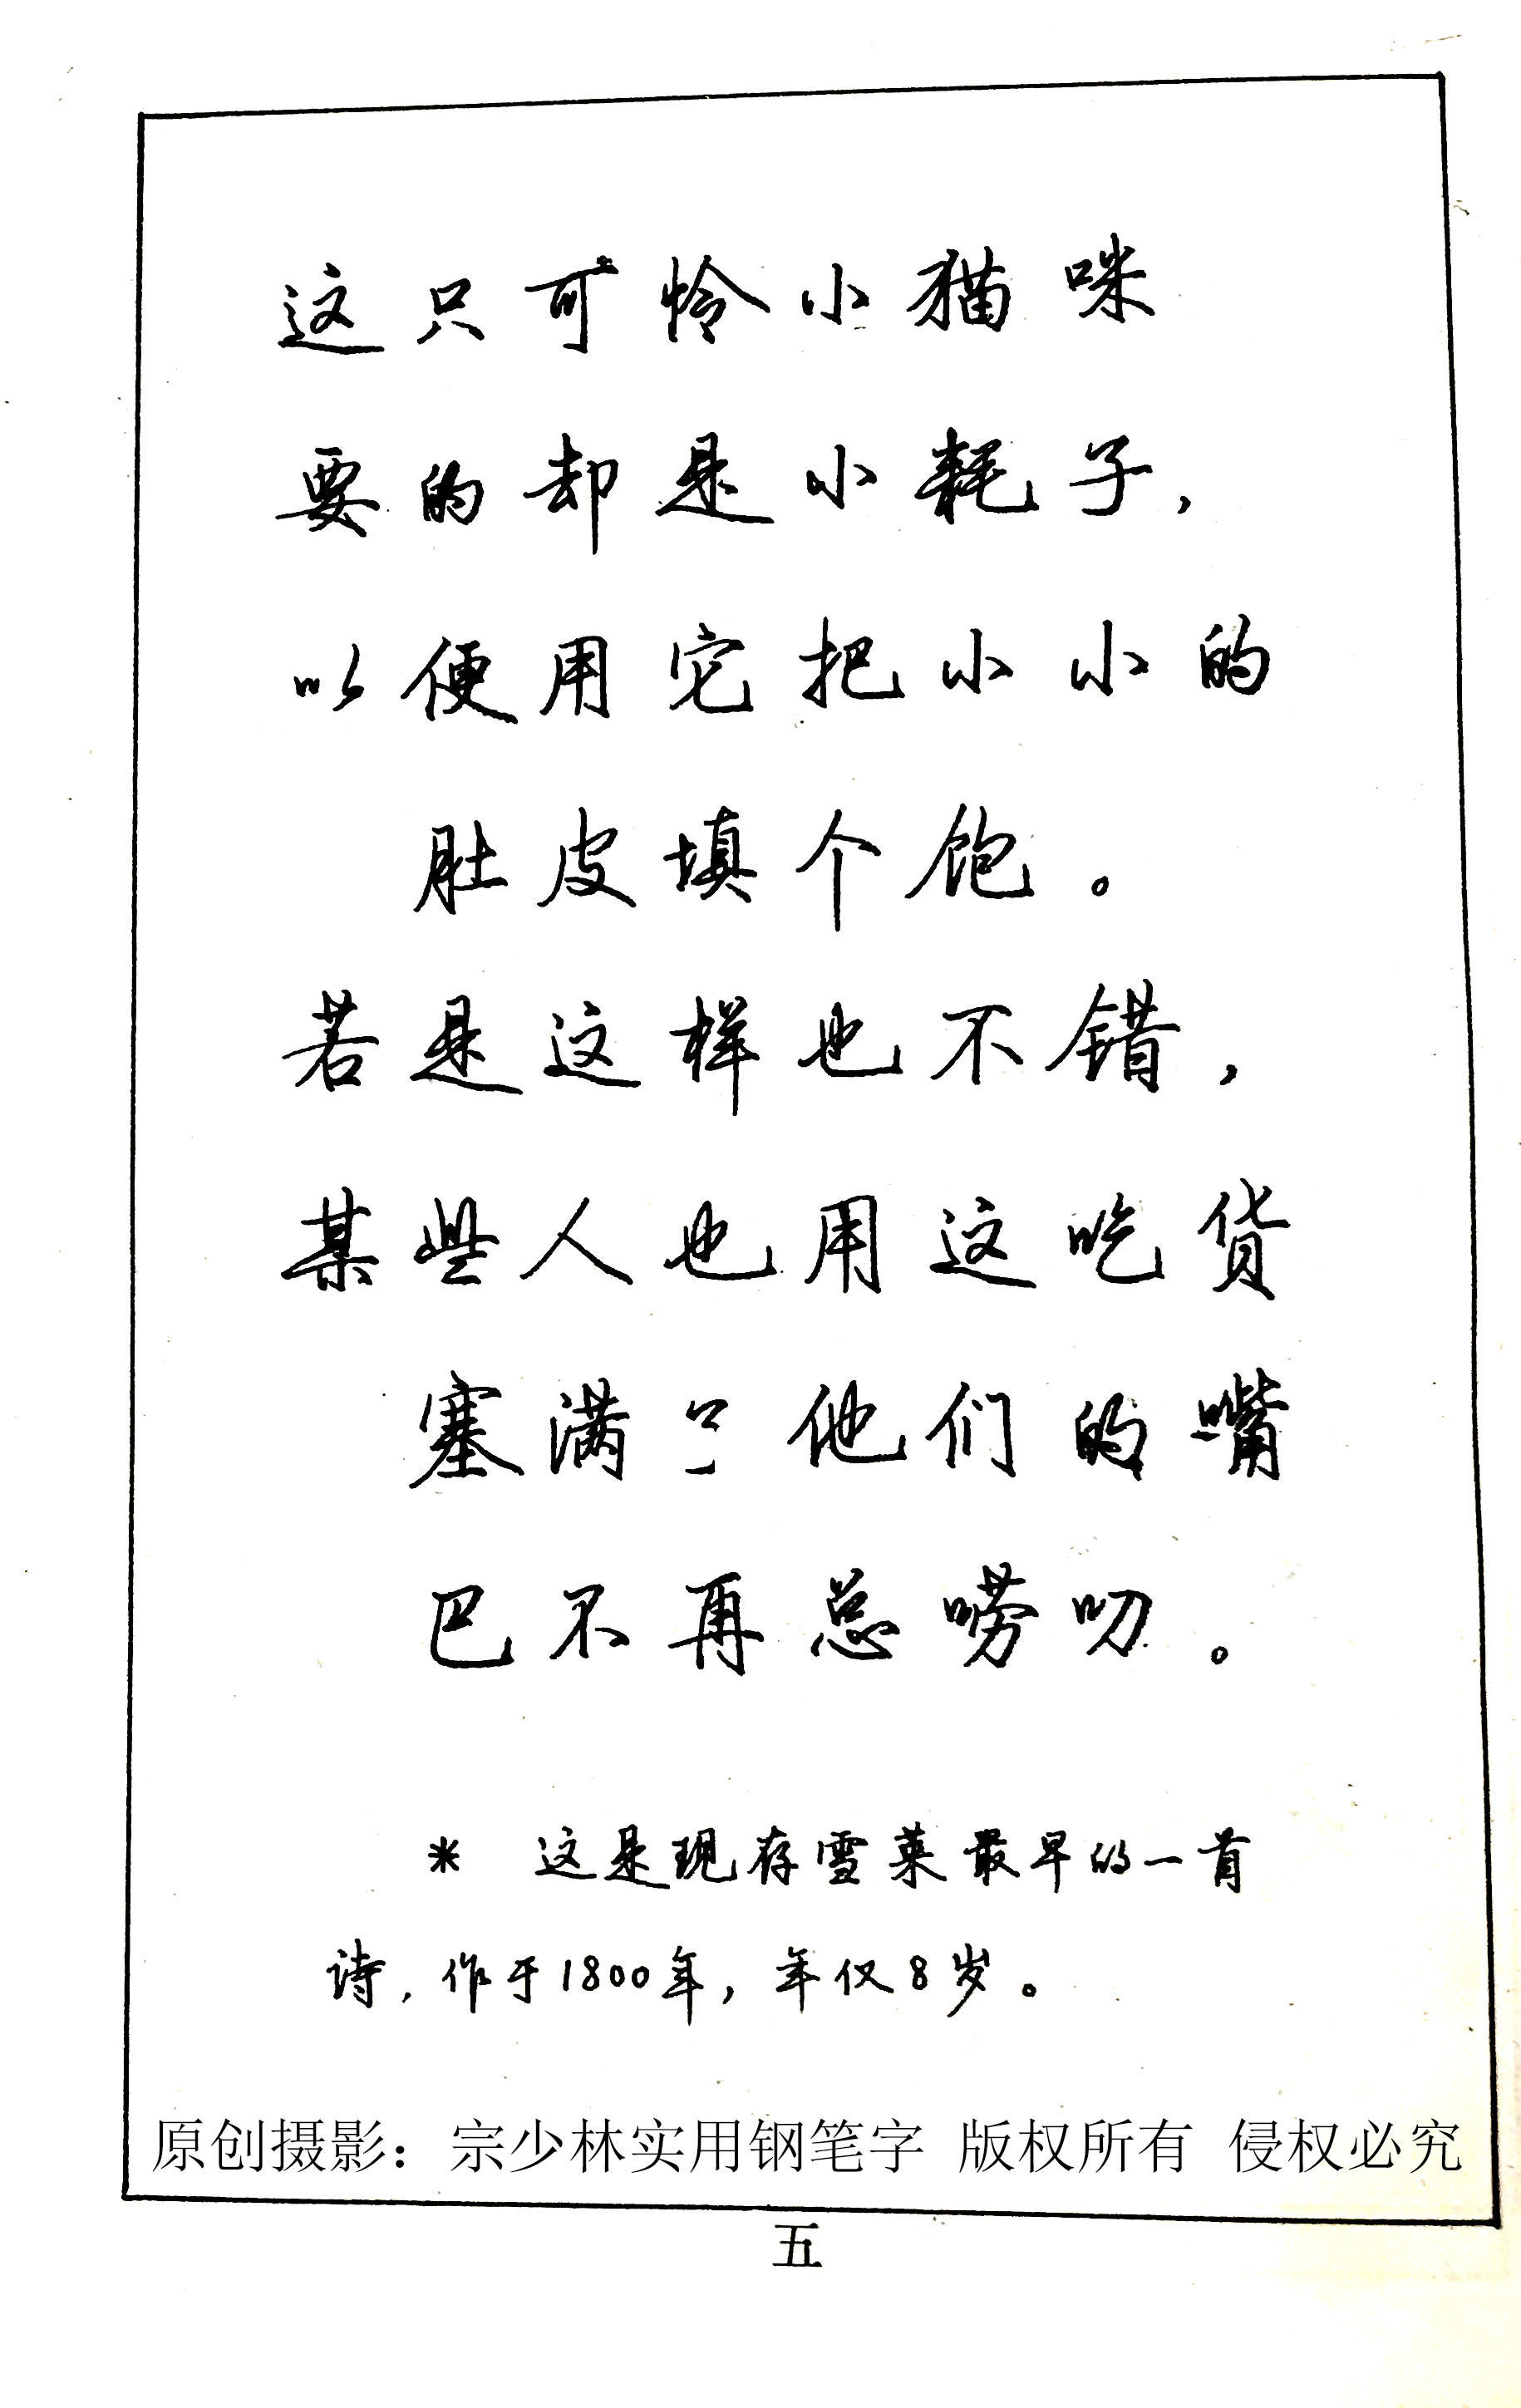 这只可怜小猫咪
要的却是小耗子，
以便用它把小小的
肚皮填个饱。
若是这样也不错，
某些人也用这吃货
塞满了他们的嘴
巴不再总唠叨。
* 这是现存雪莱最早的一首
诗，作于1800年，年仅8岁。
原创摄影：宗少林实用钢笔字 版权所有 侵权必究
五